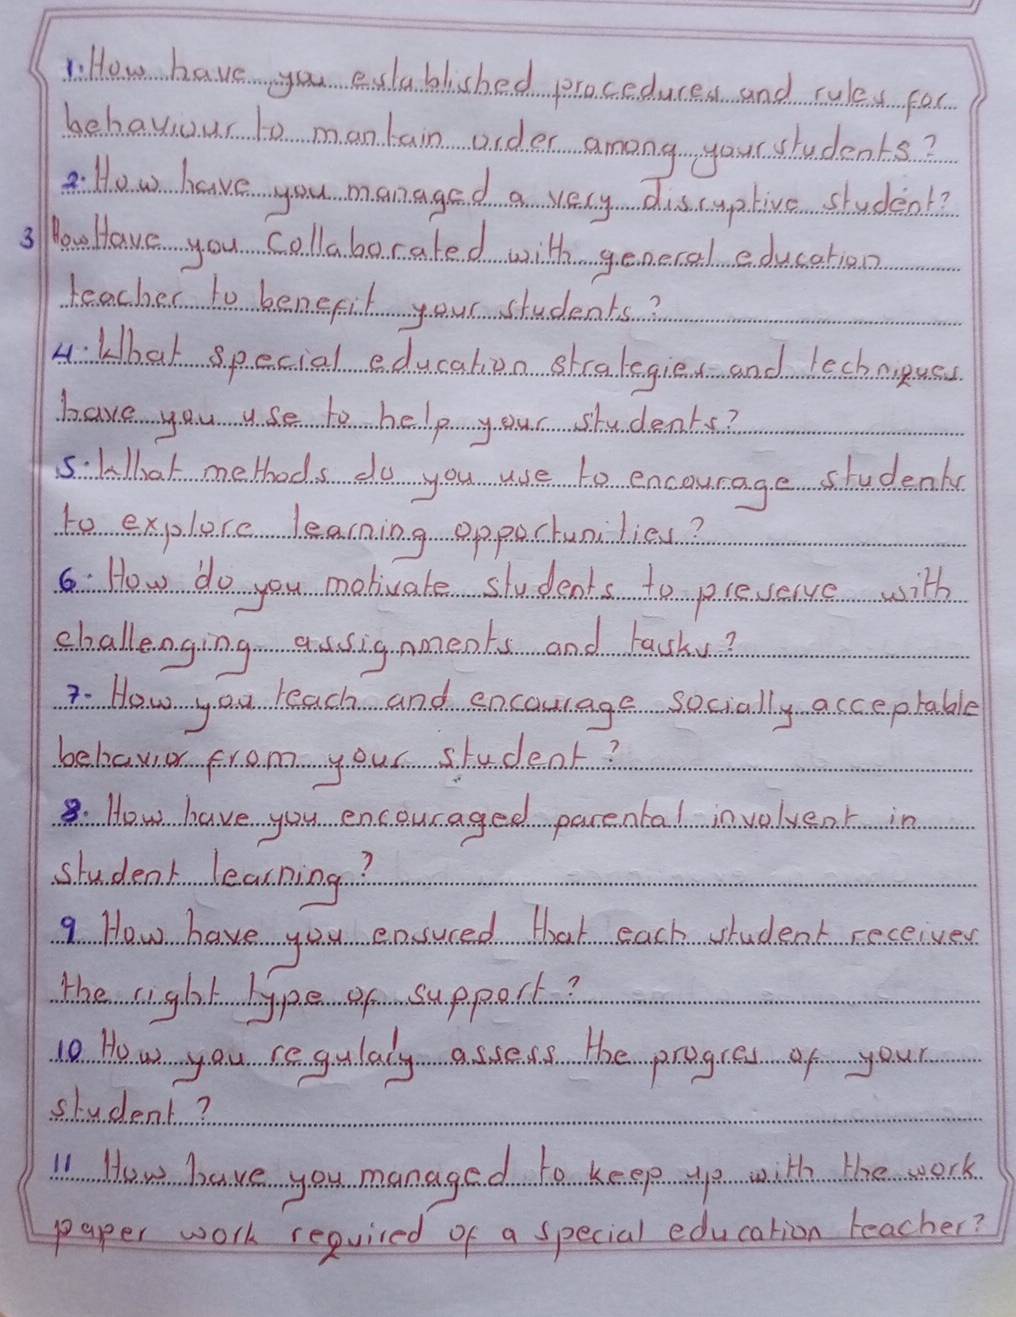 1. How have you established procedures and rules for
behaviour to mantain order among your students?
2. How have you managed a very disruptive student?
3 How Have you collaborated with general education
teacher to benefit your students?
4. What special education strategies and techniques
have you use to help your students?
5. What methods do you use to encourage students
to explore learning opportunities?
6. How do you motivate students to preserve with
challenging assignments and tasks?
7. How you teach and encourage socially acceptable
behavior from your student?
8. How have you encouraged parental involvent in
student learning?
9 How have you ensured that each student receives
the right type of support?
10 How you regulaly assess the progres of your
student?
11 How have you managed to keep up with the work
paper work required of a special education teacher?